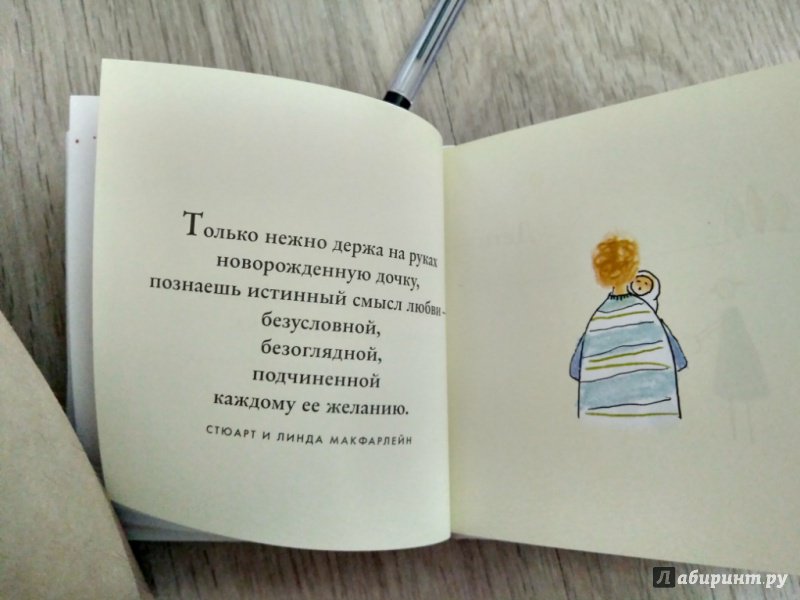 Только нежно держа на руках
новорожденную дочку,
познаешь истинный смысл любви –
безусловной,
безоглядной,
подчиненной
каждому ее желанию.
СТЮАРТ И ЛИНДА МАКФАРЛЕЙН
Лабиринт.ру